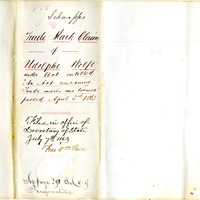 Schnapps
Trade Mark Claim
of
Udolpho Wolfe
under Act entitled
"An Act concerning
Trade marks and names"
passed April 3rd 1863
Filed in office of
Secretary of State
July 7th 1863
See page 29 Vol. of